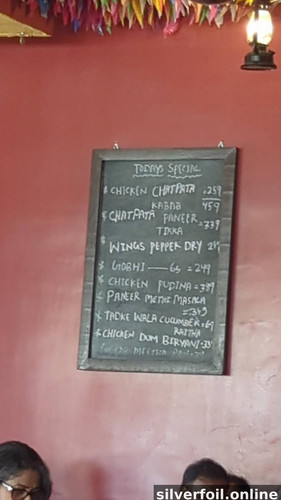 TODAYS SPECIAL
CHICKEN CHATPATA = 259
KABAB 459
CHATPATA PANEER = 339
TIKKA
WINGS PEPPER DRY
GOBHI — 65 = 249
CHICKEN PUDINA = 389
PANEER METHI MASALA
= 349
TADKE WALA CUCUMBER = 69
RAITHA
CHICKEN DUM BIRYANI
silverfoil.online